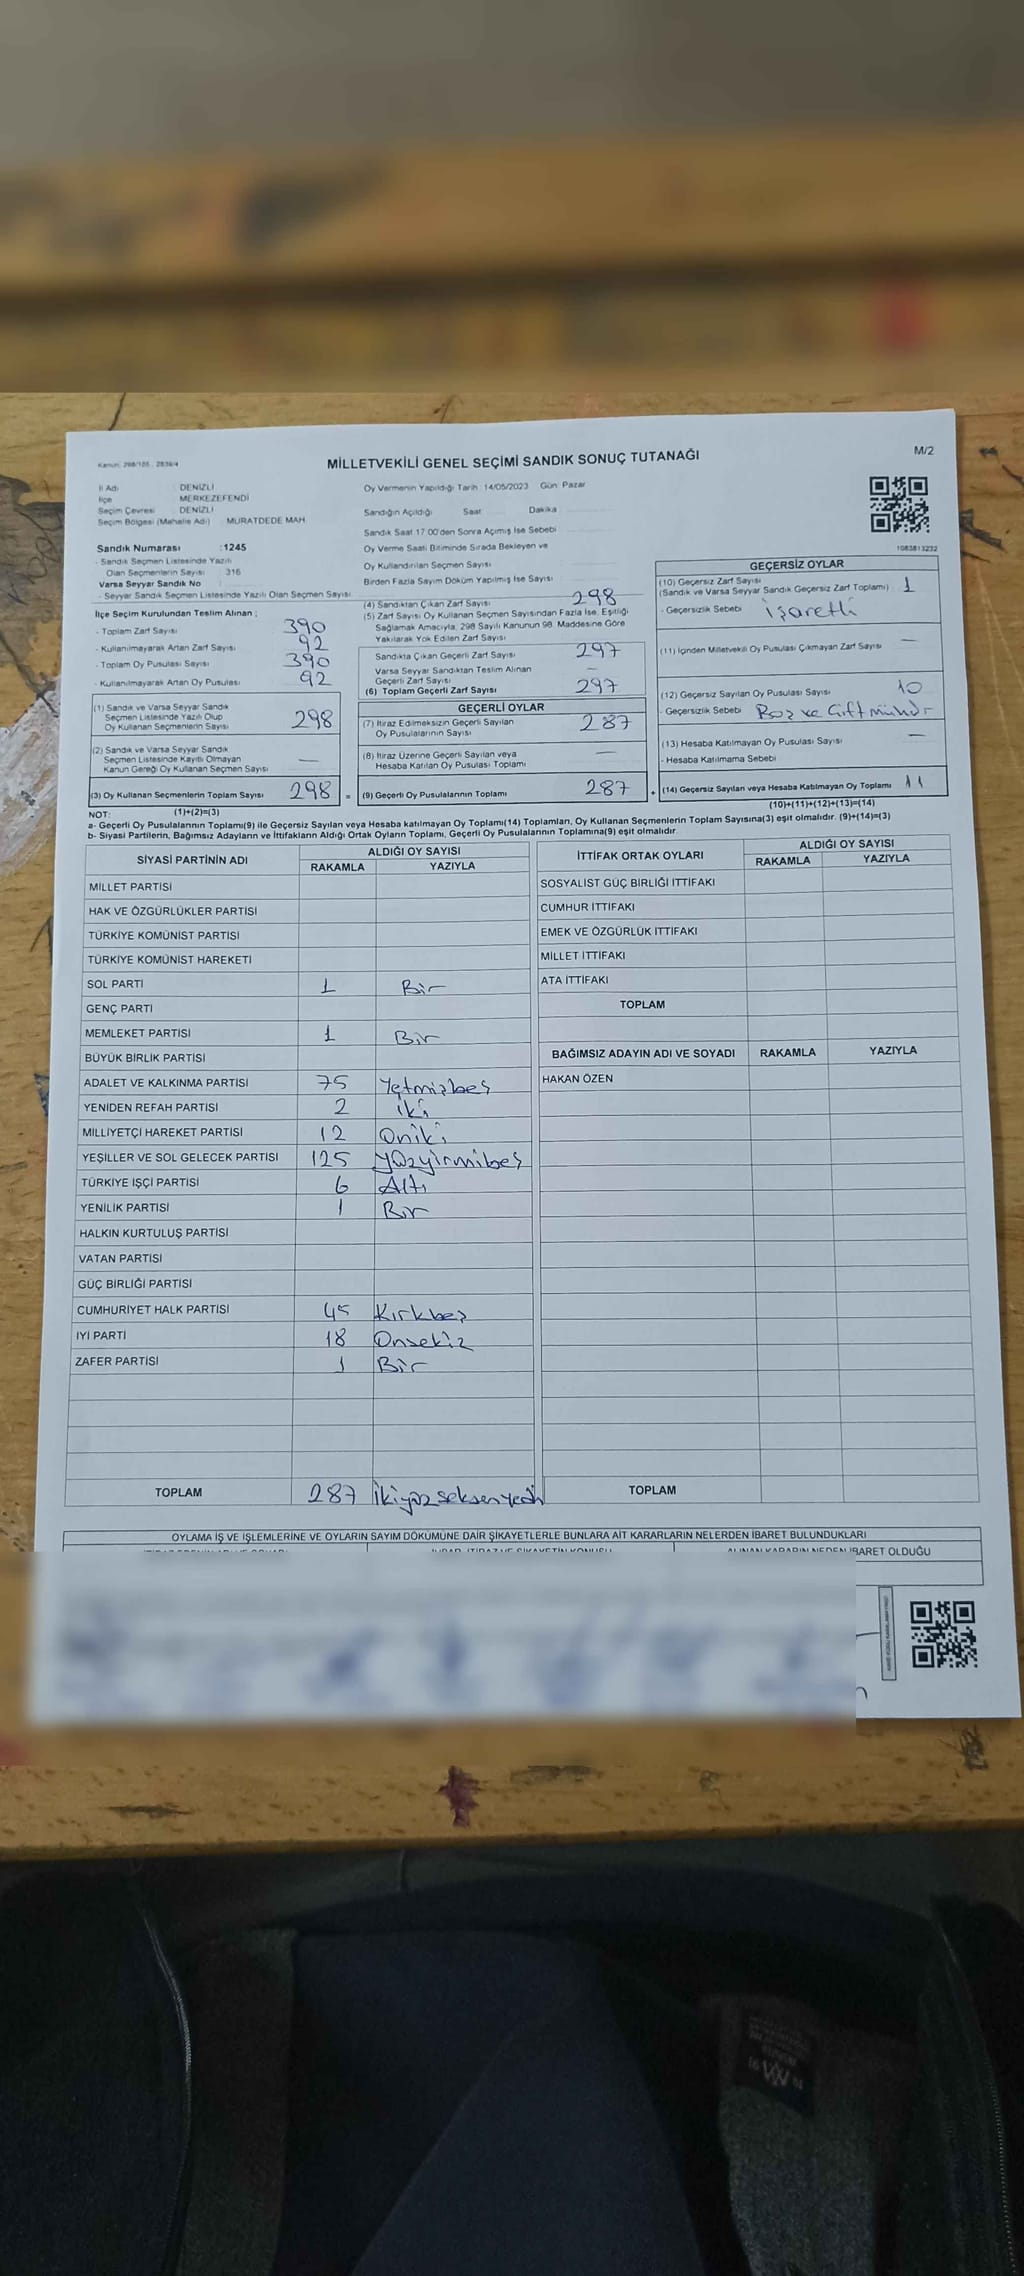 Kanun: 298/105 - 2839/4
MİLLETVEKİLİ GENEL SEÇİMİ SANDIK SONUÇ TUTANAĞI
M/2
İl Adı : DENİZLİ
İlçe : MERKEZEFENDİ
Seçim Çevresi : DENİZLİ
Seçim Bölgesi (Mahalle Adı) : MURATDEDE MAH.
Sandık Numarası : 1245
- Sandık Seçmen Listesinde Yazılı
Olan Seçmenlerin Sayısı : 316
Varsa Seyyar Sandık No
- Seyyar Sandık Seçmen Listesinde Yazılı Olan Seçmen Sayısı
Oy Vermenin Yapıldığı Tarih: 14/05/2023 Gün: Pazar
Sandığın Açıldığı Saat Dakika
Sandık Saat 17.00'den Sonra Açımış İse Sebebi
Oy Verme Saati Bitiminde Sırada Bekleyen ve
Oy Kullandırılan Seçmen Sayısı
Birden Fazla Sayım Döküm Yapılmış İse Sayısı
1083813232
İlçe Seçim Kurulundan Teslim Alınan ;
- Toplam Zarf Sayısı 390
- Kullanılmayarak Artan Zarf Sayısı 92
- Toplam Oy Pusulası Sayısı 390
- Kullanılmayarak Artan Oy Pusulası 92
(1) Sandık ve Varsa Seyyar Sandık
Seçmen Listesinde Yazılı Olup
Oy Kullanan Seçmenlerin Sayısı 298
(2) Sandık ve Varsa Seyyar Sandık
Seçmen Listesinde Kayıtlı Olmayan
Kanun Gereği Oy Kullanan Seçmen Sayısı —
(3) Oy Kullanan Seçmenlerin Toplam Sayısı 298 =
(4) Sandıktan Çıkan Zarf Sayısı 298
(5) Zarf Sayısı Oy Kullanan Seçmen Sayısından Fazla İse, Eşitliği
Sağlamak Amacıyla, 298 Sayılı Kanunun 98. Maddesine Göre
Yakılarak Yok Edilen Zarf Sayısı
Sandıkta Çıkan Geçerli Zarf Sayısı 297
Varsa Seyyar Sandıktan Teslim Alınan
Geçerli Zarf Sayısı —
(6) Toplam Geçerli Zarf Sayısı 297
GEÇERLİ OYLAR
(7) İtiraz Edilmeksizin Geçerli Sayılan
Oy Pusulalarının Sayısı 287
(8) İtiraz Üzerine Geçerli Sayılan veya
Hesaba Katılan Oy Pusulası Toplamı —
(9) Geçerli Oy Pusulalarının Toplamı 287 +
GEÇERSİZ OYLAR
(10) Geçersiz Zarf Sayısı
(Sandık ve Varsa Seyyar Sandık Geçersiz Zarf Toplamı) 1
- Geçersizlik Sebebi işaretli
(11) İçinden Milletvekili Oy Pusulası Çıkmayan Zarf Sayısı —
(12) Geçersiz Sayılan Oy Pusulası Sayısı 10
- Geçersizlik Sebebi Boş ve Çift mühür
(13) Hesaba Katılmayan Oy Pusulası Sayısı —
- Hesaba Katılmama Sebebi
(14) Geçersiz Sayılan veya Hesaba Katılmayan Oy Toplamı 11
NOT: (1)+(2)=(3) (10)+(11)+(12)+(13)=(14)
a- Geçerli Oy Pusulalarının Toplamı(9) ile Geçersiz Sayılan veya Hesaba katılmayan Oy Toplamı(14) Toplamları, Oy Kullanan Seçmenlerin Toplam Sayısına(3) eşit olmalıdır. (9)+(14)=(3)
b- Siyasi Partilerin, Bağımsız Adayların ve İttifakların Aldığı Ortak Oyların Toplamı, Geçerli Oy Pusulalarının Toplamına(9) eşit olmalıdır.
SİYASİ PARTİNİN ADI ALDIĞI OY SAYISI
RAKAMLA YAZIYLA
MİLLET PARTİSİ
HAK VE ÖZGÜRLÜKLER PARTİSİ
TÜRKİYE KOMÜNİST PARTİSİ
TÜRKİYE KOMÜNİST HAREKETİ
SOL PARTİ 1 Bir
GENÇ PARTİ
MEMLEKET PARTİSİ 1 Bir
BÜYÜK BİRLİK PARTİSİ
ADALET VE KALKINMA PARTİSİ 75 Yetmişbeş
YENİDEN REFAH PARTİSİ 2 iki
MİLLİYETÇİ HAREKET PARTİSİ 12 Oniki
YEŞİLLER VE SOL GELECEK PARTİSİ 125 Yüzyirmibeş
TÜRKİYE İŞÇİ PARTİSİ 6 Altı
YENİLİK PARTİSİ 1 Bir
HALKIN KURTULUŞ PARTİSİ
VATAN PARTİSİ
GÜÇ BİRLİĞİ PARTİSİ
CUMHURİYET HALK PARTİSİ 45 Kırkbeş
İYİ PARTİ 18 Onsekiz
ZAFER PARTİSİ 1 Bir
TOPLAM 287 İkiyüzseksenyedi
İTTİFAK ORTAK OYLARI ALDIĞI OY SAYISI
RAKAMLA YAZIYLA
SOSYALİST GÜÇ BİRLİĞİ İTTİFAKI
CUMHUR İTTİFAKI
EMEK VE ÖZGÜRLÜK İTTİFAKI
MİLLET İTTİFAKI
ATA İTTİFAKI
TOPLAM
BAĞIMSIZ ADAYIN ADI VE SOYADI RAKAMLA YAZIYLA
HAKAN ÖZEN
TOPLAM
OYLAMA İŞ VE İŞLEMLERİNE VE OYLARIN SAYIM DÖKÜMÜNE DAİR ŞİKAYETLERLE BUNLARA AİT KARARLARIN NELERDEN İBARET BULUNDUKLARI
ALINAN KARARIN NEDEN İBARET OLDUĞU